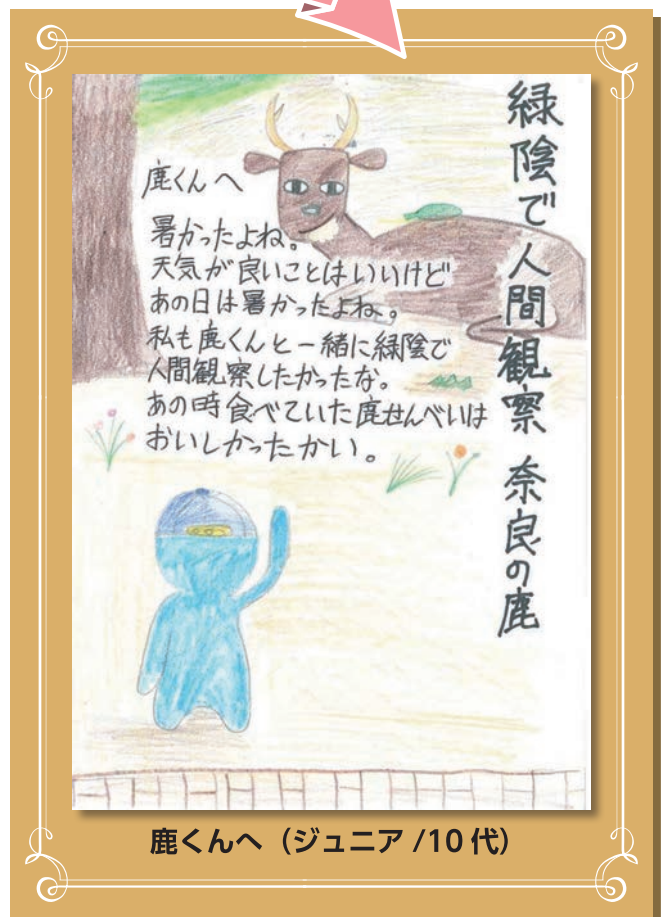 緑陰で人間観察 奈良の鹿
鹿くんへ
暑かったよね。
天気が良いことはいいけど
あの日は暑かったよね。
私も鹿くんと一緒に緑陰で
人間観察したかったな。
あの時食べていた鹿せんべいは
おいしかったかい。
鹿くんへ（ジュニア/10代）